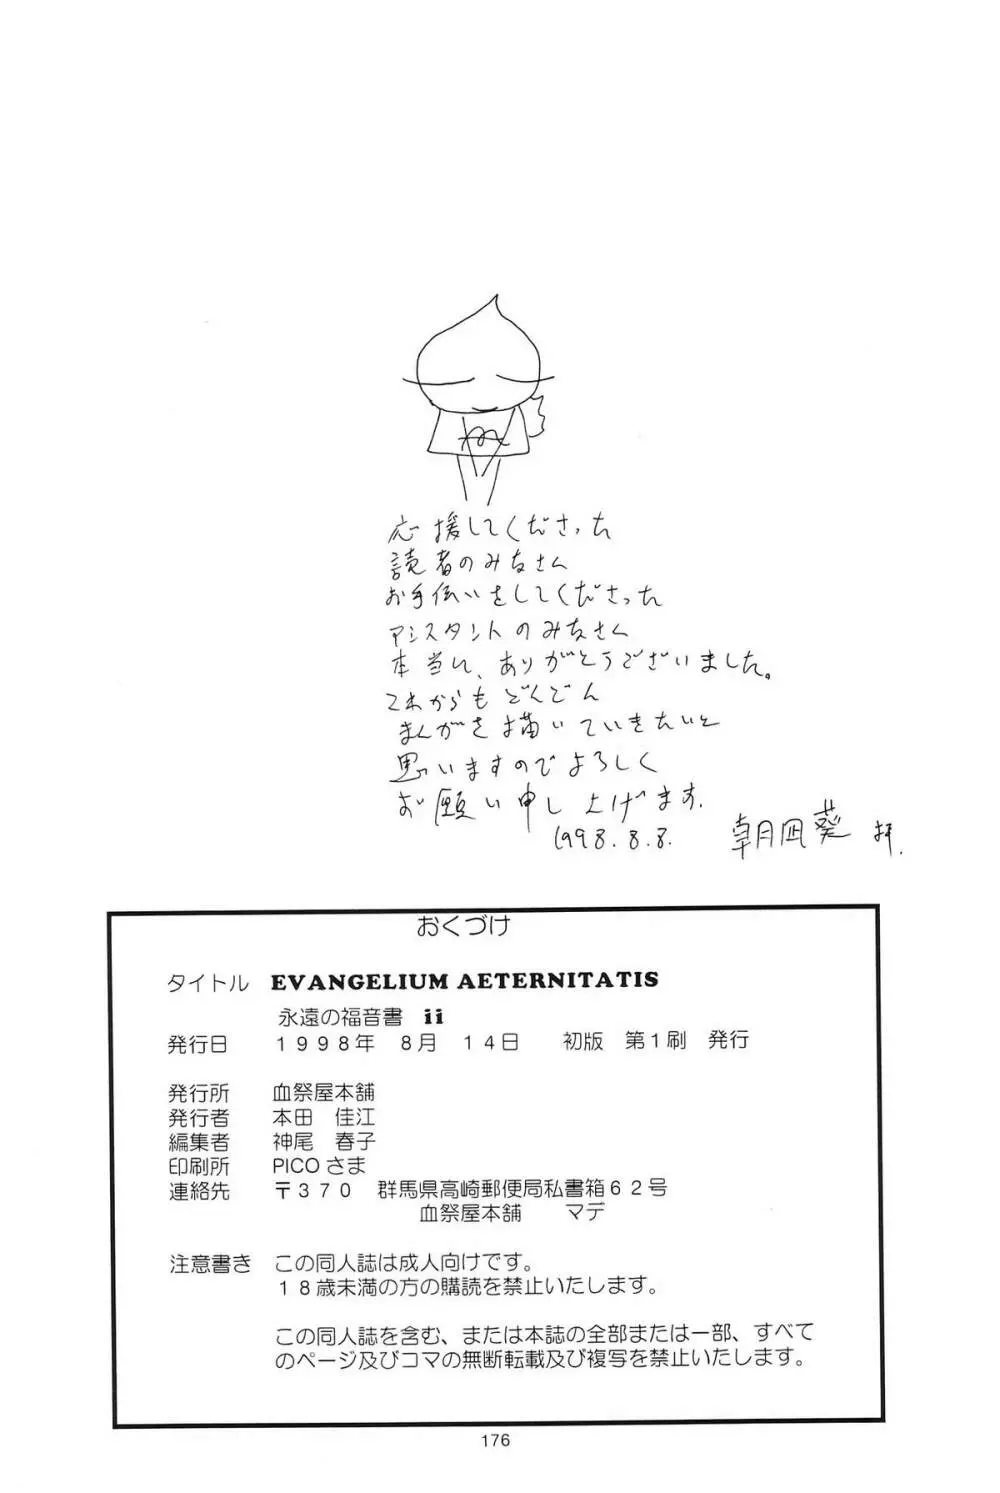 応援してくださった
読者のみなさん
お手伝いをしてくださった
アシスタントのみなさん
本当に、ありがとうございました。
これからもどんどん
まんがを描いていきたいと
思いますのでよろしく
お願い申し上げます.
1998.8.8.
朝凪葵 拝.
おくづけ
タイトル EVANGELIUM AETERNITATIS
永遠の福音書 ii
発行日 1998年 8月 14日 初版 第1刷 発行
発行所 血祭屋本舗
発行者 本田 佳江
編集者 神尾 春子
印刷所 PICOさま
連絡先 〒370 群馬県高崎郵便局私書箱62号
血祭屋本舗 マデ
注意書き この同人誌は成人向けです。
18歳未満の方の購読を禁止いたします。
この同人誌を含む、または本誌の全部または一部、すべて
のページ及びコマの無断転載及び複写を禁止いたします。
176